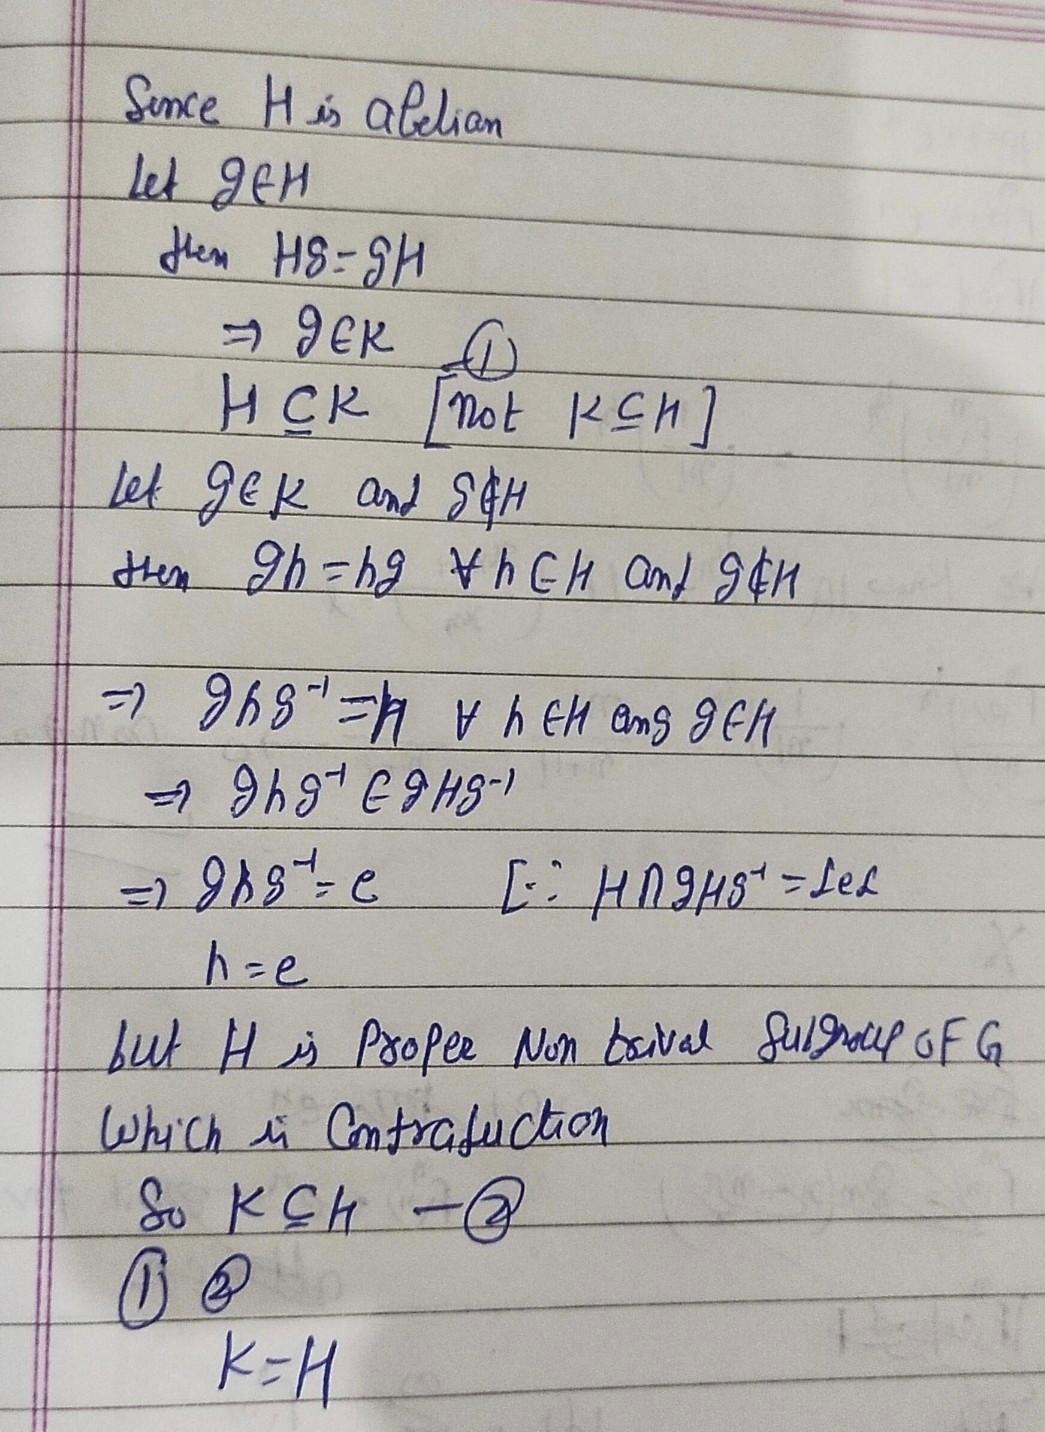 Since H is abelian
Let g∈H
then Hg=gH
⇒ g∈K —①
H ⊆ K [not K⊆H]
Let g∈K and g∉H
then gh=hg ∀ h∈H and g∉H
⇒ ghg⁻¹=h ∀ h∈H ang g∈H
⇒ ghg⁻¹ ∈ gHg⁻¹
⇒ ghg⁻¹=e [∵ H∩gHg⁻¹={e}
h=e
but H is Proper Non trival Subgroup OF G
Which is Contraduction
So K⊆H —②
① ②
K=H